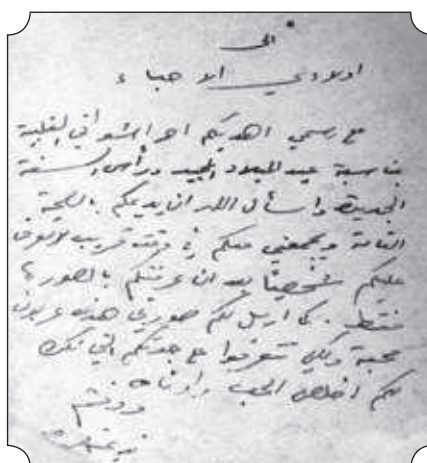 الى
اولادي الاحباء
مع رسمي اهديكم احر اشواقي القلبية
بمناسبة عيد الميلاد المجيد ورأس السنة
الجديدة واسأل الله ان يديمكم بالصحة
التامة ويجمعني معكم في وقت قريب لاتعرف
عليكم شخصيًا بعد ان عرفتكم بالصور
فقط. كما ارسل لكم صورتي هذه عربون
محبة ولكي تتعرفوا على جدتكم التي تكن
لكم اخلص الحب
ودمتم